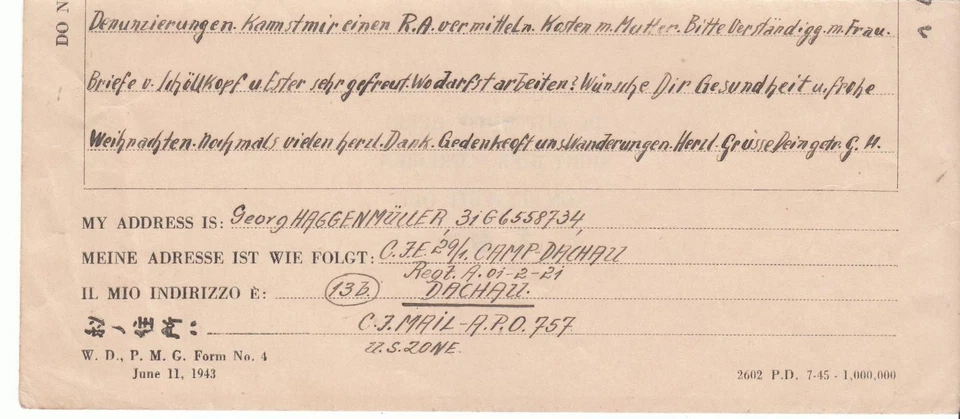 DO N
Denunzierungen. Kannst mir einen R.A. vermitteln. Kosten m. Mutter. Bitte Verständigg. m. Frau.
Briefe v. Schöllkopf u. Ester sehr gefreut. Wo darfst arbeiten? Wünsche Dir Gesundheit u. frohe
Weihnachten. Nochmals vielen herzl. Dank. Gedenke oft uns. Wanderungen. Herzl. Grüsse Dein getr. G. H.
MY ADDRESS IS: Georg HAGGENMÜLLER, 31G6558734,
MEINE ADRESSE IST WIE FOLGT: C.I.E 29/1. CAMP-DACHAU
Regt. A. 01-2-21
IL MIO INDIRIZZO È: 13b. DACHAU.
ノ住所ハ C.I. MAIL - A.P.O. 757
U.S. ZONE.
W. D., P. M. G. Form No. 4
June 11, 1943
2602 P.D. 7-45 - 1,000,000